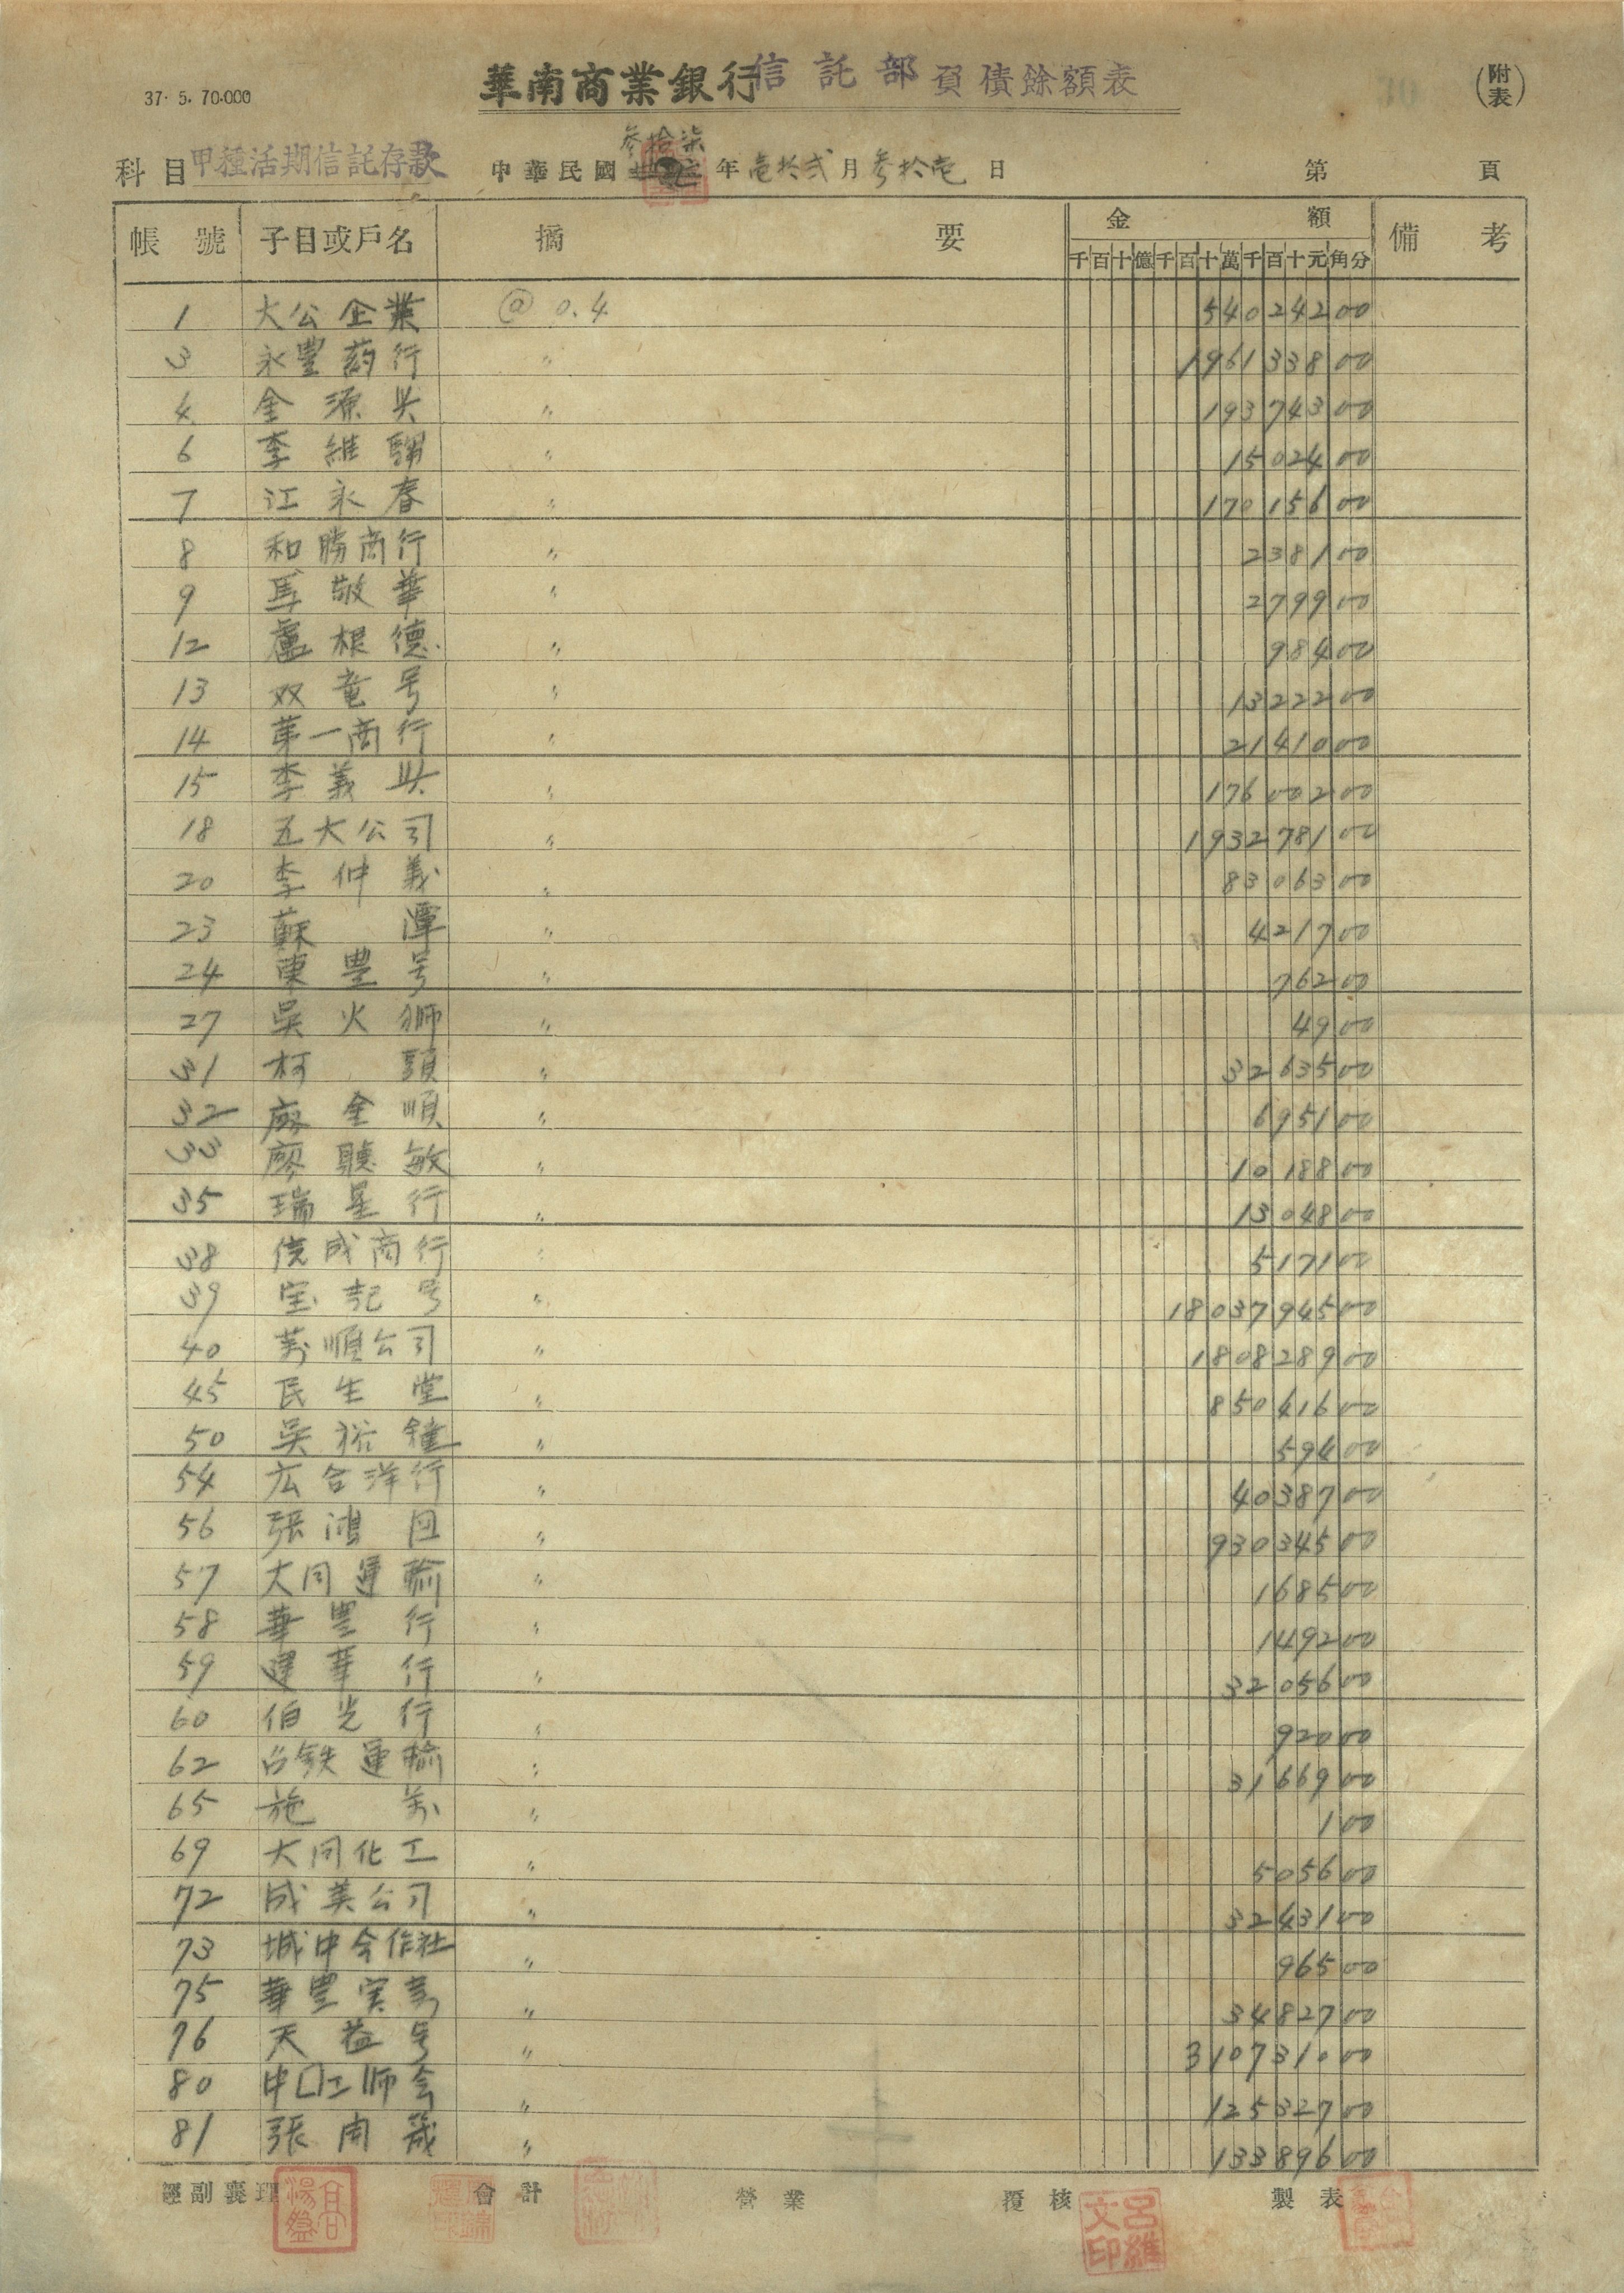 37. 5. 70.000
華南商業銀行信託部負債餘額表
(附表)
科目 甲種活期信託存款 中華民國 參拾柒 年 壱拾弍 月 參拾壱 日 第 頁
帳號 子目或戶名 摘要 金額 備考
千百十億千百十萬千百十元角分
1 大公企業 @ 0.4 54024200
3 永豐葯行 〃 196133800
4 金源兴 〃 19374300
6 李維 〃 1502400
7 江永春 〃 17015600
8 和勝商行 〃 238100
9 馬敬華 〃 279900
12 盧根德 〃 98400
13 双竜号 〃 1322200
14 第一商行 〃 2141000
15 李義兴 〃 17600200
18 五大公司 〃 193278100
20 李仲義 〃 8306300
23 蘇潭 〃 421700
24 東豊号 〃 76200
27 吳火獅 〃 4900
31 柯頭 〃 3263500
32 廖金順 〃 695100
33 廖聽敏 〃 1018800
35 瑞星行 〃 1304800
38 成商行 〃 517100
39 宝記号 〃 1803794500
40 萬順公司 〃 180828900
45 民生堂 〃 85041600
50 吳裕鐘 〃 59400
54 広合洋行 〃 4038700
56 張鴻 〃 93034500
57 大同運輸 〃 168500
58 華豊行 〃 149200
59 建華行 〃 3205600
60 伯光行 〃 92000
62 台鉄運輸 〃 3166900
65 施 〃 100
69 大同化工 〃 505600
72 成美公司 〃 3243100
73 城中合作社 〃 96500
75 華豊実業 〃 3482700
76 天益号 〃 310731000
80 中口工師会 〃 12532700
81 張周箴 〃 13389600
經副襄理 會計 營業 覆核 製表
高湯盤
呂維文印